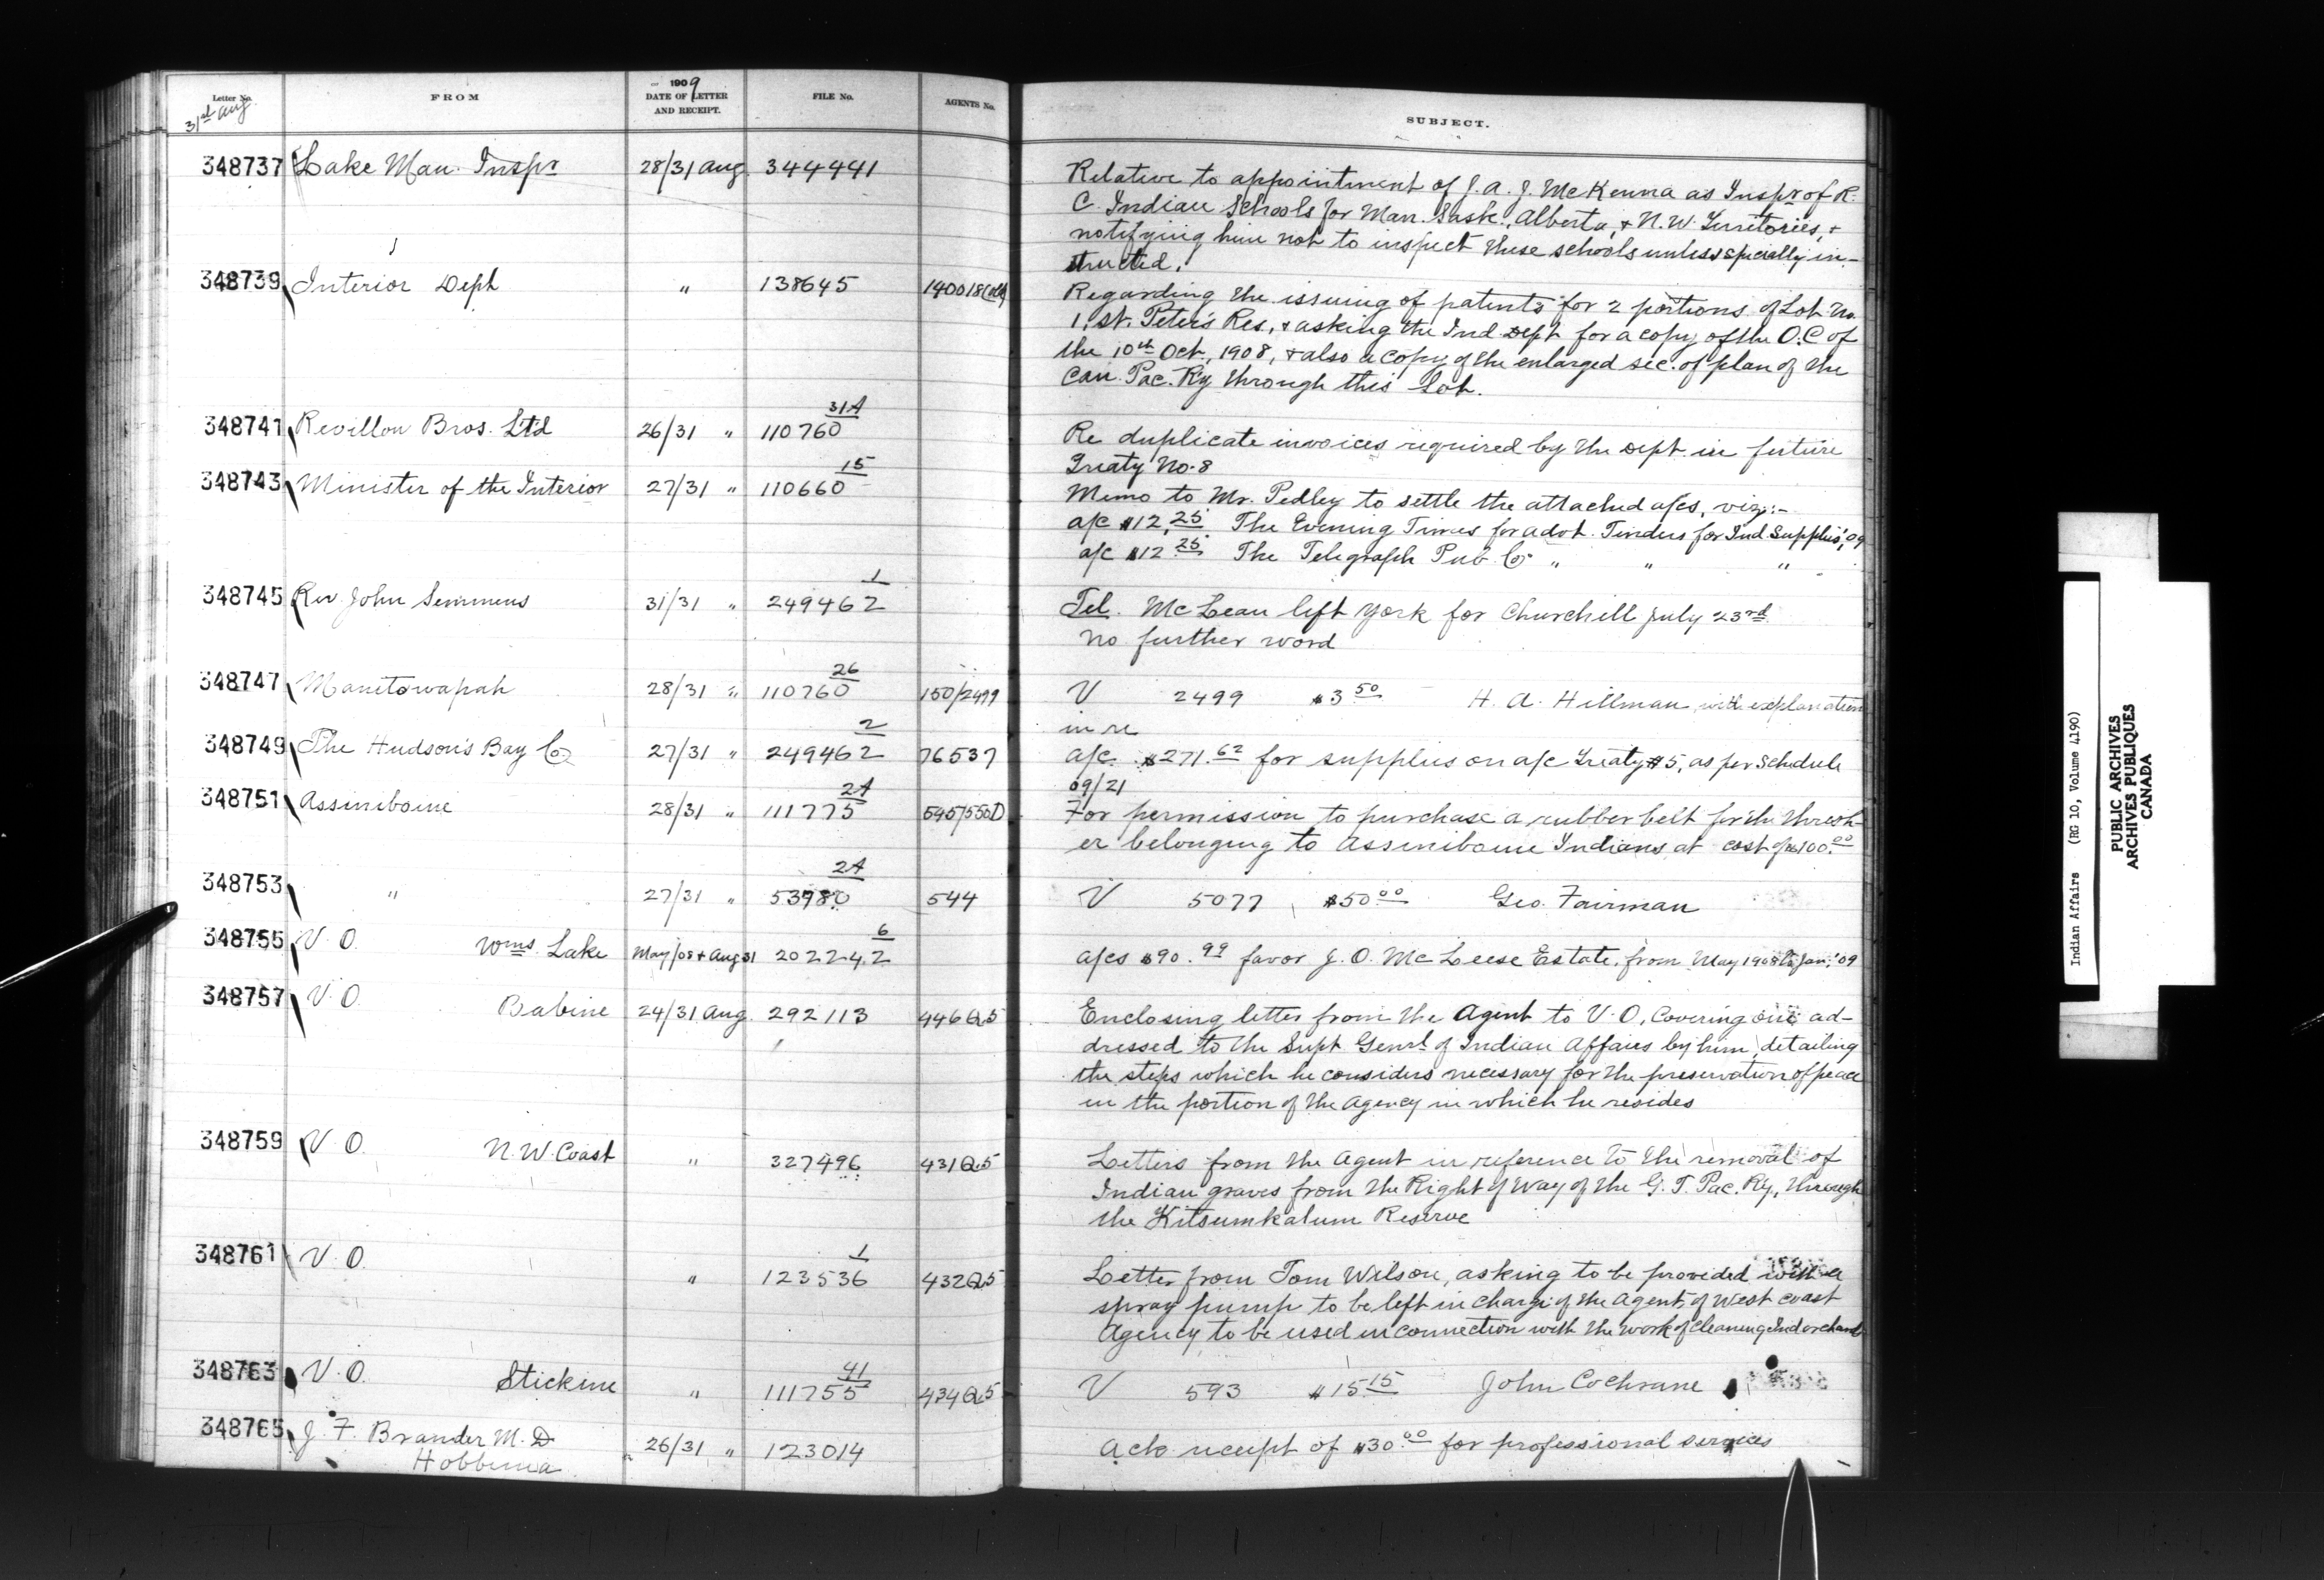 Letter No.
FROM
1909
DATE OF LETTER
AND RECEIPT.
FILE No.
AGENTS No.
SUBJECT.
31st Aug
348737 Lake Man. Inspr 28/31 Aug 344441 Relative to appointment of J. A. J. McKenna as Inspr of R.
C. Indian Schools for Man. Sask., Alberta, & N.W. Territories, &
notifying him not to inspect these schools unless specially in-
structed.
348739 Interior Dept " 138645 140018 Regarding the issuing of patents for 2 portions of Lot No.
1, St. Peter's Res, & asking the Ind Dept for a copy of the O.C of
the 10th Oct., 1908, & also a copy of the enlarged sec. of plan of the
Can. Pac. Ry through this Lot.
348741 Revillon Bros. Ltd 26/31 " 110760 31A Re duplicate invoices required by the Dept. in future
Treaty No. 8
348743 Minister of the Interior 27/31 " 110660 15 Memo to Mr. Pedley to settle the attached a/cs, viz:-
a/c $12.25 The Evening Times for advt. Tenders for Ind. Supplies, '09
a/c $12 25 The Telegraph Pub. Co " " "
348745 Rev. John Semmens 31/31 " 249462 1 Tel. McLean left York for Churchill July 23rd
No further word
348747 Manitowapah 28/31 " 110760 26 150/2499 V 2499 $3 50 H. A. Hillman with explanation
in re
348749 The Hudson's Bay Co 27/31 " 249462 2 76537 a/c $271.62 for supplies on a/c Treaty #5, as per Schedule
09/21
348751 Assiniboine 28/31 " 111775 2A 545/550D For permission to purchase a rubber belt for the thresh-
er belonging to Assiniboine Indians at cost of $100.00
348753 " 27/31 " 53980 2A 544 V 5077 $50 00 Geo. Fairman
348755 V. O. Wms. Lake May/08 & Aug 31 202242 6 a/cs $90.99 favor J. O. McLeese Estate, from May 1908 to Jan. '09
348757 V. O. Babine 24/31 Aug. 292113 446Q5 Enclosing letter from the Agent to V. O, Covering one ad-
dressed to the Supt. Genrl of Indian Affairs by him, detailing
the steps which he considers necessary for the preservation of peace
in the portion of the Agency in which he resides
348759 V. O. N. W. Coast " 327496 431Q5 Letters from the Agent in reference to the removal of
Indian graves from the Right of Way of the G. T. Pac. Ry., through
the Kitsumkalum Reserve
348761 V. O. " 123536 1 432Q5 Letter from Tom Wilson, asking to be provided with a
spray pump to be left in charge of the Agent of West Coast
Agency to be used in connection with the work of cleaning Ind orchards
348763 V. O. Stickine " 111755 41 434Q5 V 593 $15 15 John Cochrane
348765 J. F. Brander M. D. 26/31 " 123014 Ack receipt of $30.00 for professional services
Hobbema
Indian Affairs (RG 10, Volume 4190)
PUBLIC ARCHIVES
ARCHIVES PUBLIQUES
CANADA